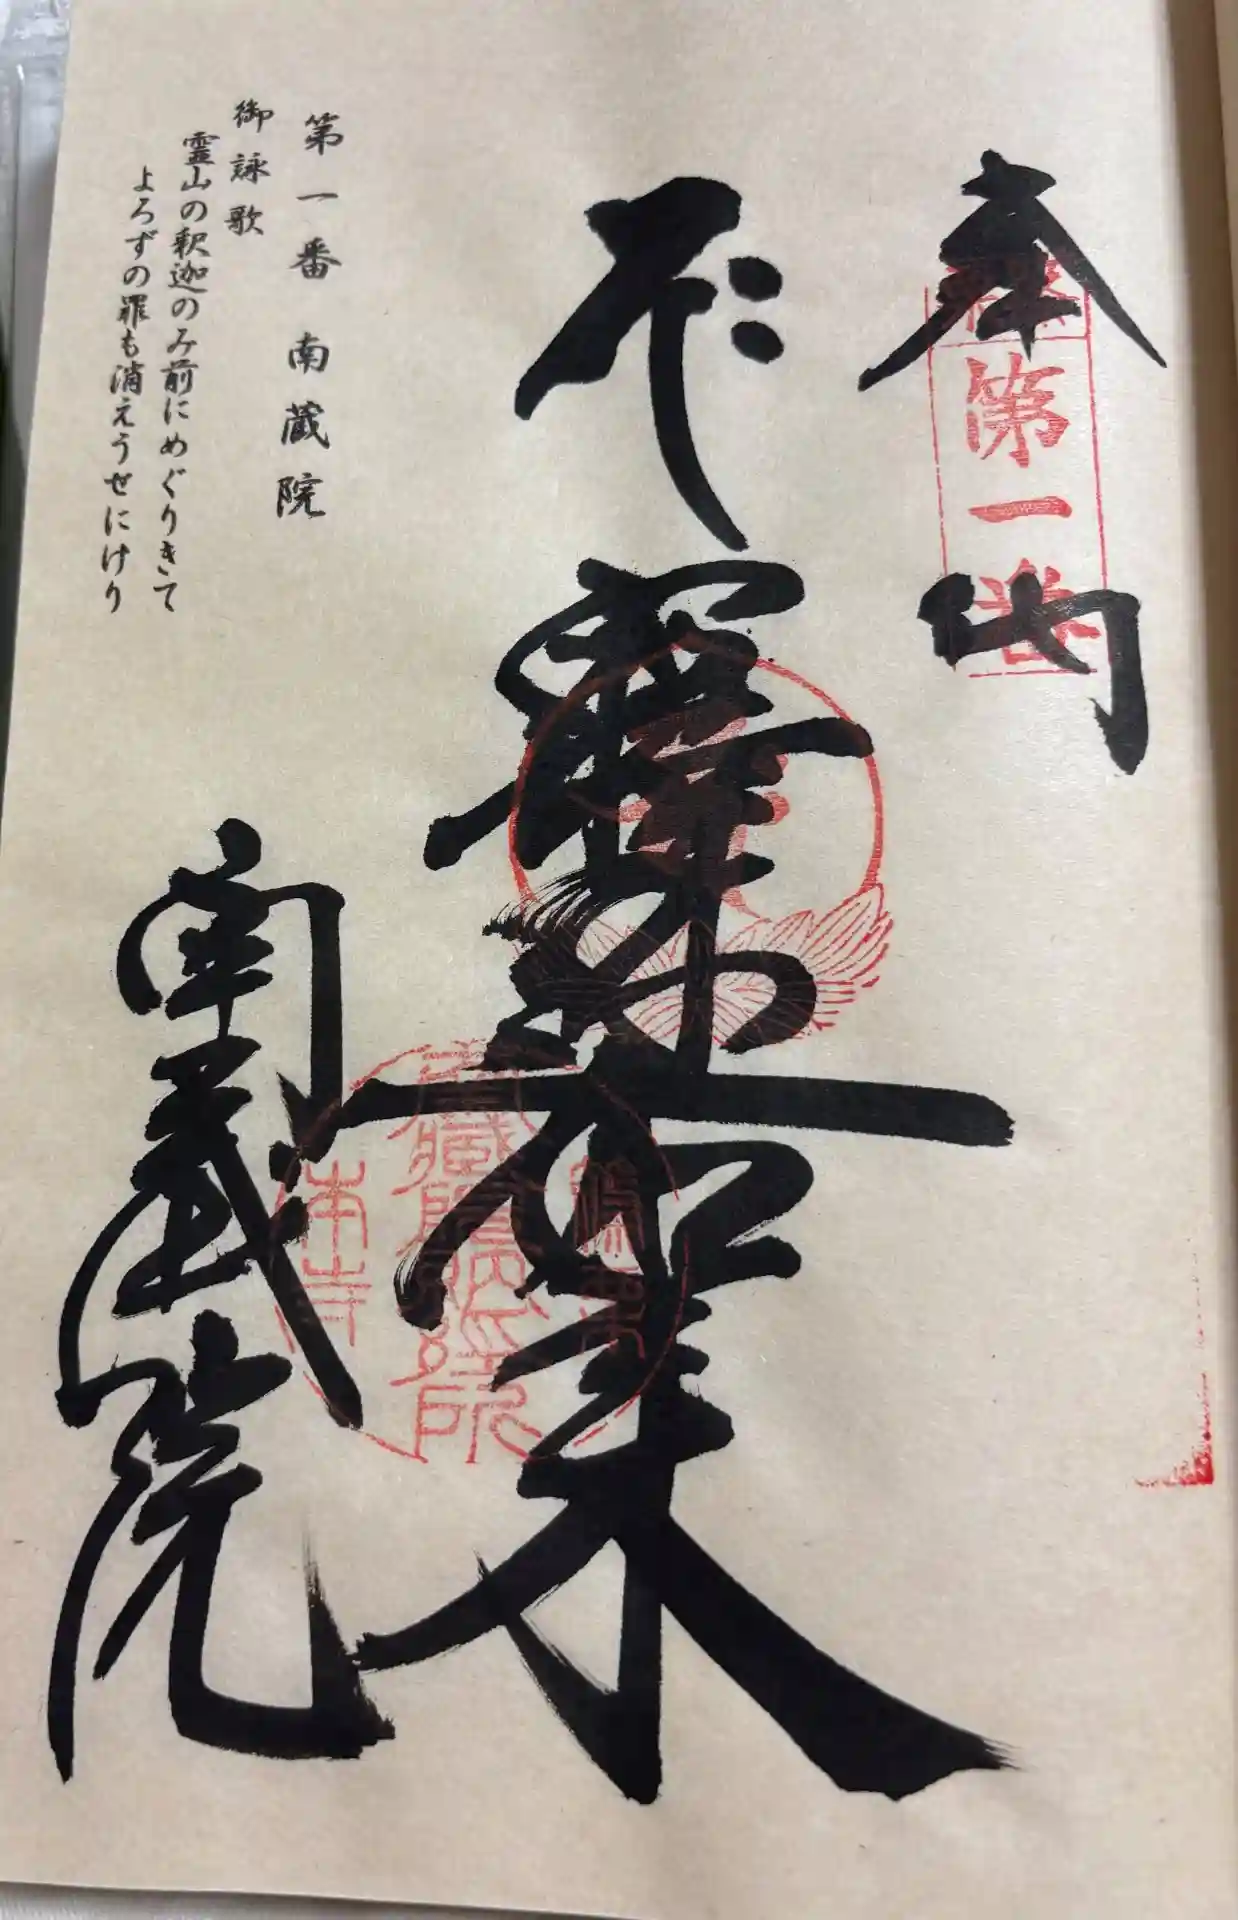 奉納
第一番
釋迦如来
南蔵院
第一番 南蔵院
御詠歌
霊山の釈迦のみ前にめぐりきて
よろずの罪も消えうせにけり
本山寺
蔵院